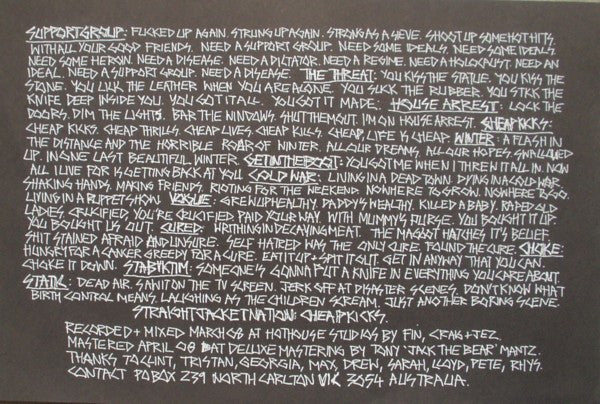 SUPPORT GROUP: FUCKED UP AGAIN. STRUNG UP AGAIN. STRONG AS A SIEVE. SHOOT UP SOME HOT HITS
WITH ALL YOUR GOOD FRIENDS. NEED A SUPPORT GROUP. NEED SOME IDEALS. NEED SOME IDEALS.
NEED SOME HEROIN. NEED A DISEASE. NEED A DICTATOR. NEED A REGIME. NEED A HOLOCAUST. NEED AN
IDEAL. NEED A SUPPORT GROUP. NEED A DISEASE. THE THREAT: YOU KISS THE STATUE. YOU KISS THE
STONE. YOU LICK THE LEATHER WHEN YOU ARE ALONE. YOU SUCK THE RUBBER. YOU STICK THE
KNIFE DEEP INSIDE YOU. YOU GOT IT ALL. YOU GOT IT MADE. HOUSE ARREST: LOCK THE
DOORS. DIM THE LIGHTS. BAR THE WINDOWS. SHUT THEM OUT. I'M ON HOUSE ARREST. CHEAP KICKS:
CHEAP KICKS. CHEAP THRILLS. CHEAP LIVES. CHEAP KILLS. CHEAP, LIFE IS CHEAP. WINTER: A FLASH IN
THE DISTANCE AND THE HORRIBLE ROAR OF WINTER. ALL OUR DREAMS, ALL OUR HOPES. SWALLOWED
UP. IN ONE LAST BEAUTIFUL WINTER. GET IN THE BOOT: YOU GOT ME WHEN I THREW IT ALL IN. NOW
ALL I LIVE FOR IS GETTING BACK AT YOU. COLD WAR: LIVING IN A DEAD TOWN. DYING IN A COLD WAR.
SHAKING HANDS. MAKING FRIENDS. RIOTING FOR THE WEEKEND. NOWHERE TO GROW. NOWHERE TO GO.
LIVING IN A PUPPET SHOW. VOGUE: GREW UP HEALTHY. DADDY'S WEALTHY. KILLED A BABY. RAPED OLD
LADIES. CRUCIFIED, YOU'RE CRUCIFIED. PAID YOUR WAY. WITH MUMMY'S PURSE. YOU BOUGHT IT UP.
YOU BOUGHT US OUT. CURED: WRITHING IN DECAYING MEAT. THE MAGGOT HATCHES IT'S BELIEF.
SHIT STAINED AFRAID AND UNSURE. SELF HATRED WAS THE ONLY CURE. FOUND THE CURE. CHOKE:
HUNGRY FOR A CANCER GREEDY FOR A CURE. EAT IT UP + SPIT IT OUT. GET IN ANYWAY THAT YOU CAN.
CHOKE IT DOWN. STAB VICTIM: SOMEONE'S GONNA PUT A KNIFE IN EVERYTHING YOU CARE ABOUT.
STATIC: DEAD AIR. SAW IT ON THE TV SCREEN. JERK OFF AT DISASTER SCENES. DON'T KNOW WHAT
BIRTH CONTROL MEANS. LAUGHING AS THE CHILDREN SCREAM. JUST ANOTHER BORING SCENE.
STRAIGHTJACKET NATION: CHEAP KICKS.
RECORDED + MIXED MARCH 08 AT HOTHOUSE STUDIOS BY FIN, CRAIG + JEZ.
MASTERED APRIL 08 AT DELUXE MASTERING BY TONY 'JACK THE BEAR' MANTZ.
THANKS TO CLINT, TRISTAN, GEORGIA, MAX, DREW, SARAH, LLOYD, PETE, RHYS.
CONTACT PO BOX 239 NORTH CARLTON VIC 3054 AUSTRALIA.